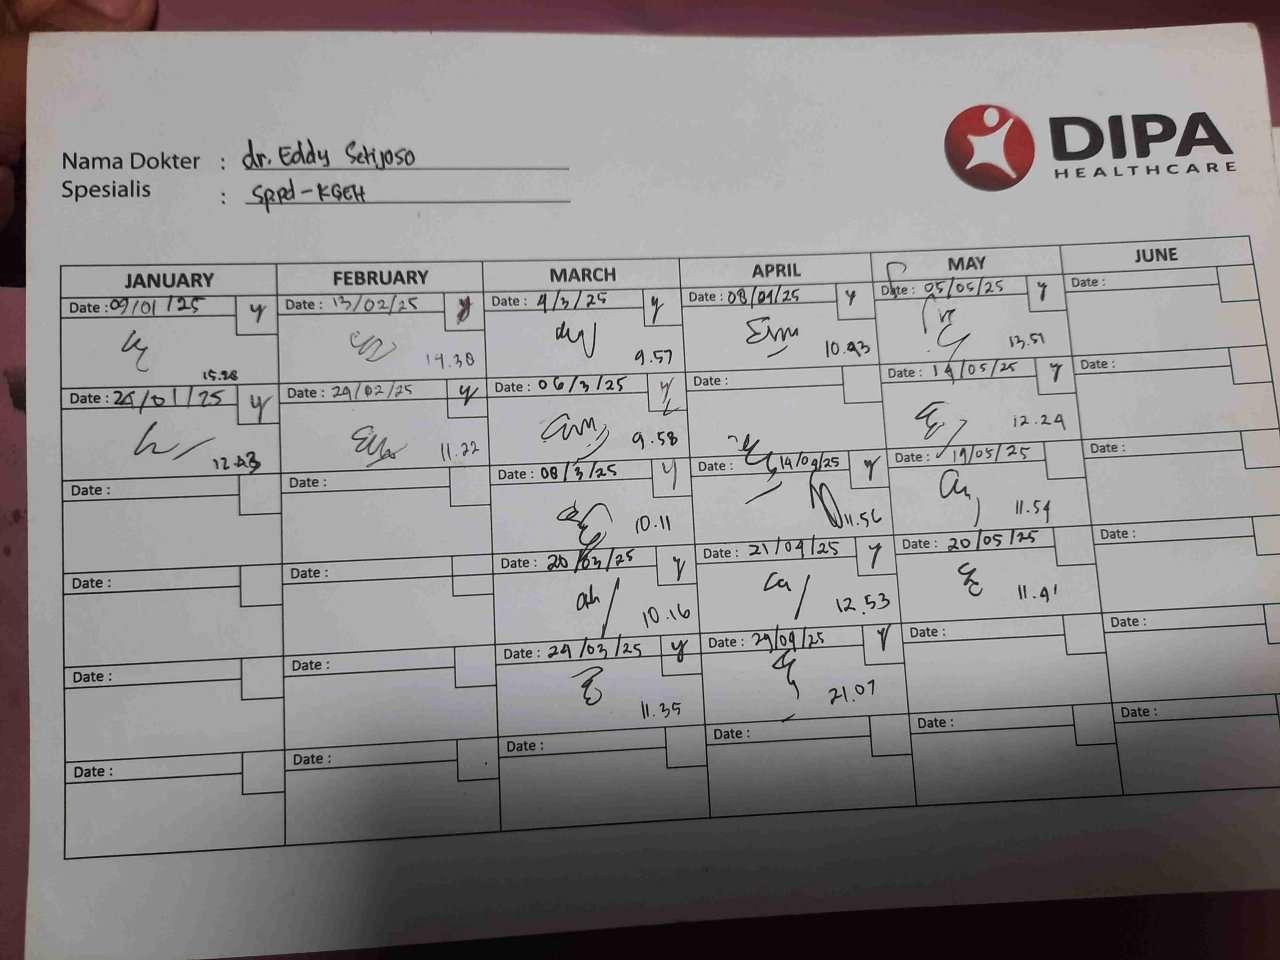 DIPA
HEALTHCARE
Nama Dokter : dr. Eddy Setijoso
Spesialis : Sppd-KGEH
JANUARY FEBRUARY MARCH APRIL MAY JUNE
Date : 09/01/25 y Date : 13/02/25 y Date : 4/3/25 y Date : 08/04/25 y Date : 05/05/25 y Date :
15.28 14.30 9.57 10.43 13.51
Date : 25/01/25 y Date : 24/02/25 y Date : 06/3/25 y Date : Date : 14/05/25 y Date :
12.43 11.22 9.58 12.24
Date : Date : Date : 08/3/25 y Date : 14/04/25 y Date : 19/05/25 Date :
10.11 11.56 11.54
Date : Date : Date : 20/03/25 y Date : 21/04/25 y Date : 20/05/25 Date :
10.16 12.53 11.41
Date : Date : Date : 24/03/25 y Date : 29/04/25 y Date : Date :
11.35 21.07
Date : Date : Date : Date : Date : Date :